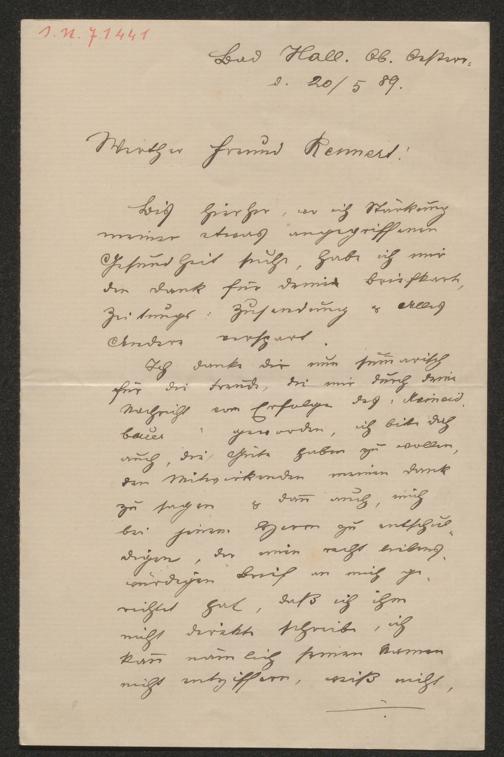 J. N. 71441
Bad Hall. Ob. Oesterr.
d. 20/5 89.
Werther Freund Rennert!
Bis hierher, wo ich Stärkung
meiner etwas angegriffenen
Gesundheit suche, habe ich mir
den Dank für deine Briefkarte,
Zeitungs-Zusendung & Alles
Andere verspart.
Ich danke dir nun summarisch
für die Freude, die mir durch deine
Nachricht vom Erfolge des "Meineid-
bauer" geworden, ich bitte dich
auch, die Güte haben zu wollen,
den Mitwirkenden meinen Dank
zu sagen & dann auch, mich
bei jenem Herrn zu entschul-
digen, der einen recht liebens-
würdigen Brief an mich ge-
richtet hat, daß ich ihm
nicht direkte schreibe, ich
kann nämlich seinen Namen
nicht entziffern, weiß nicht,